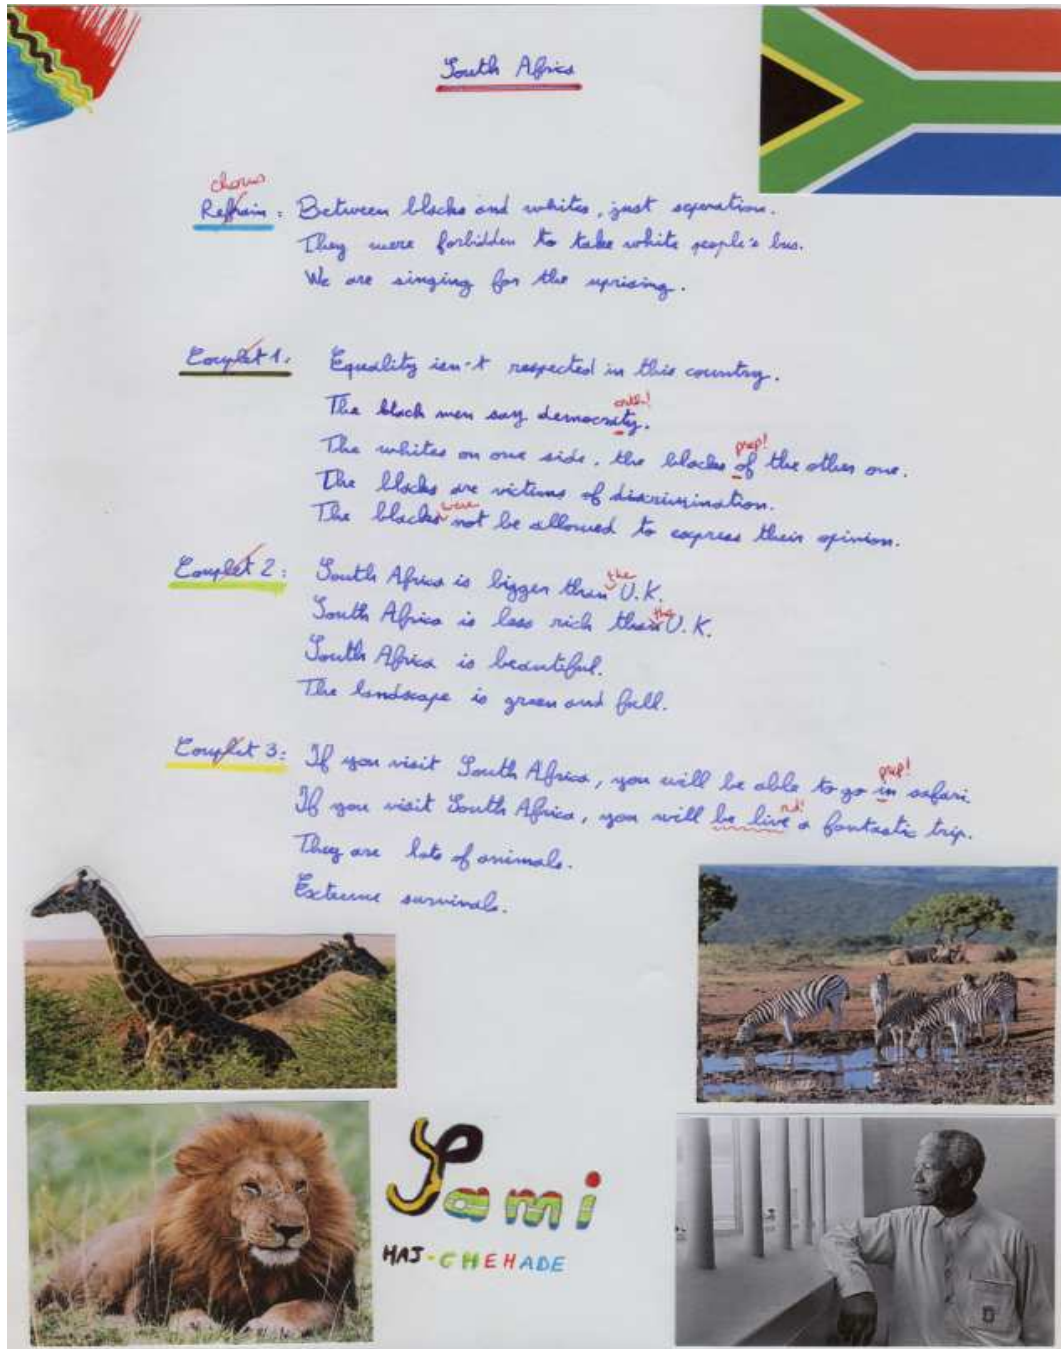 South Africa
chorus
Refrain : Between blacks and whites, just seperation.
They were forbidden to take white people's bus.
We are singing for the uprising.
Couplet 1: Equality isn't respected in this country.
orth!
The black men say democraty.
prep!
The whites on one side, the blacks of the other one.
The blacks are victims of discrimination.
were
The blacks not be allowed to express their opinion.
the
Couplet 2: South Africa is bigger than U.K.
the
South Africa is less rich than U.K.
South Africa is beautiful.
The landscape is green and full.
prep!
Couplet 3: If you visit South Africa, you will be able to go in safari.
If you visit South Africa, you will be live a fantastic trip.
They are lots of animals.
Extreme survivals.
Sami
HAJ-CHEHADE